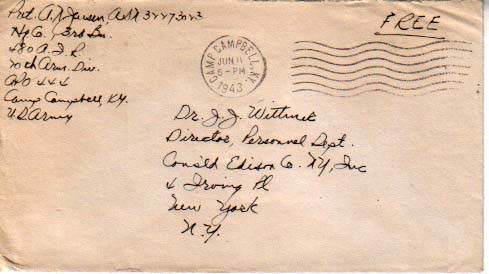 Pvt. A. J. Jensen, ASN
Hq Co. 3rd Bn.
480 A.I.R.
20th Arm. Div.
APO 444
Camp Campbell, Ky.
U.S. Army
CAMP CAMPBELL, KY.
JUN 11
6-PM
1943
FREE
Dr. J. J. Wittmer
Director, Personnel Dept.
Consl'd Edison Co. NY, Inc
4 Irving Pl
New York
N.Y.